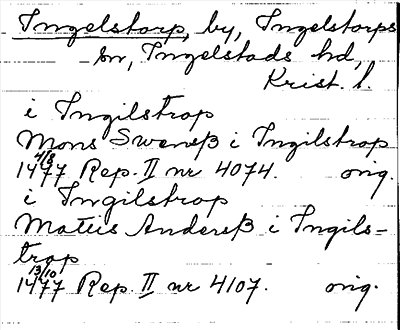 Ingelstorp, by, Ingelstorps
sn, Ingelstads hd,
Krist. l.
i Ingilstrop
Mons Swenß i Ingilstrop
4/8
1477 Rep. II nr 4074. orig.
i Ingilstrop
Mateis Anderß i Ingils-
trop
13/10
1477 Rep. II nr 4107. orig.